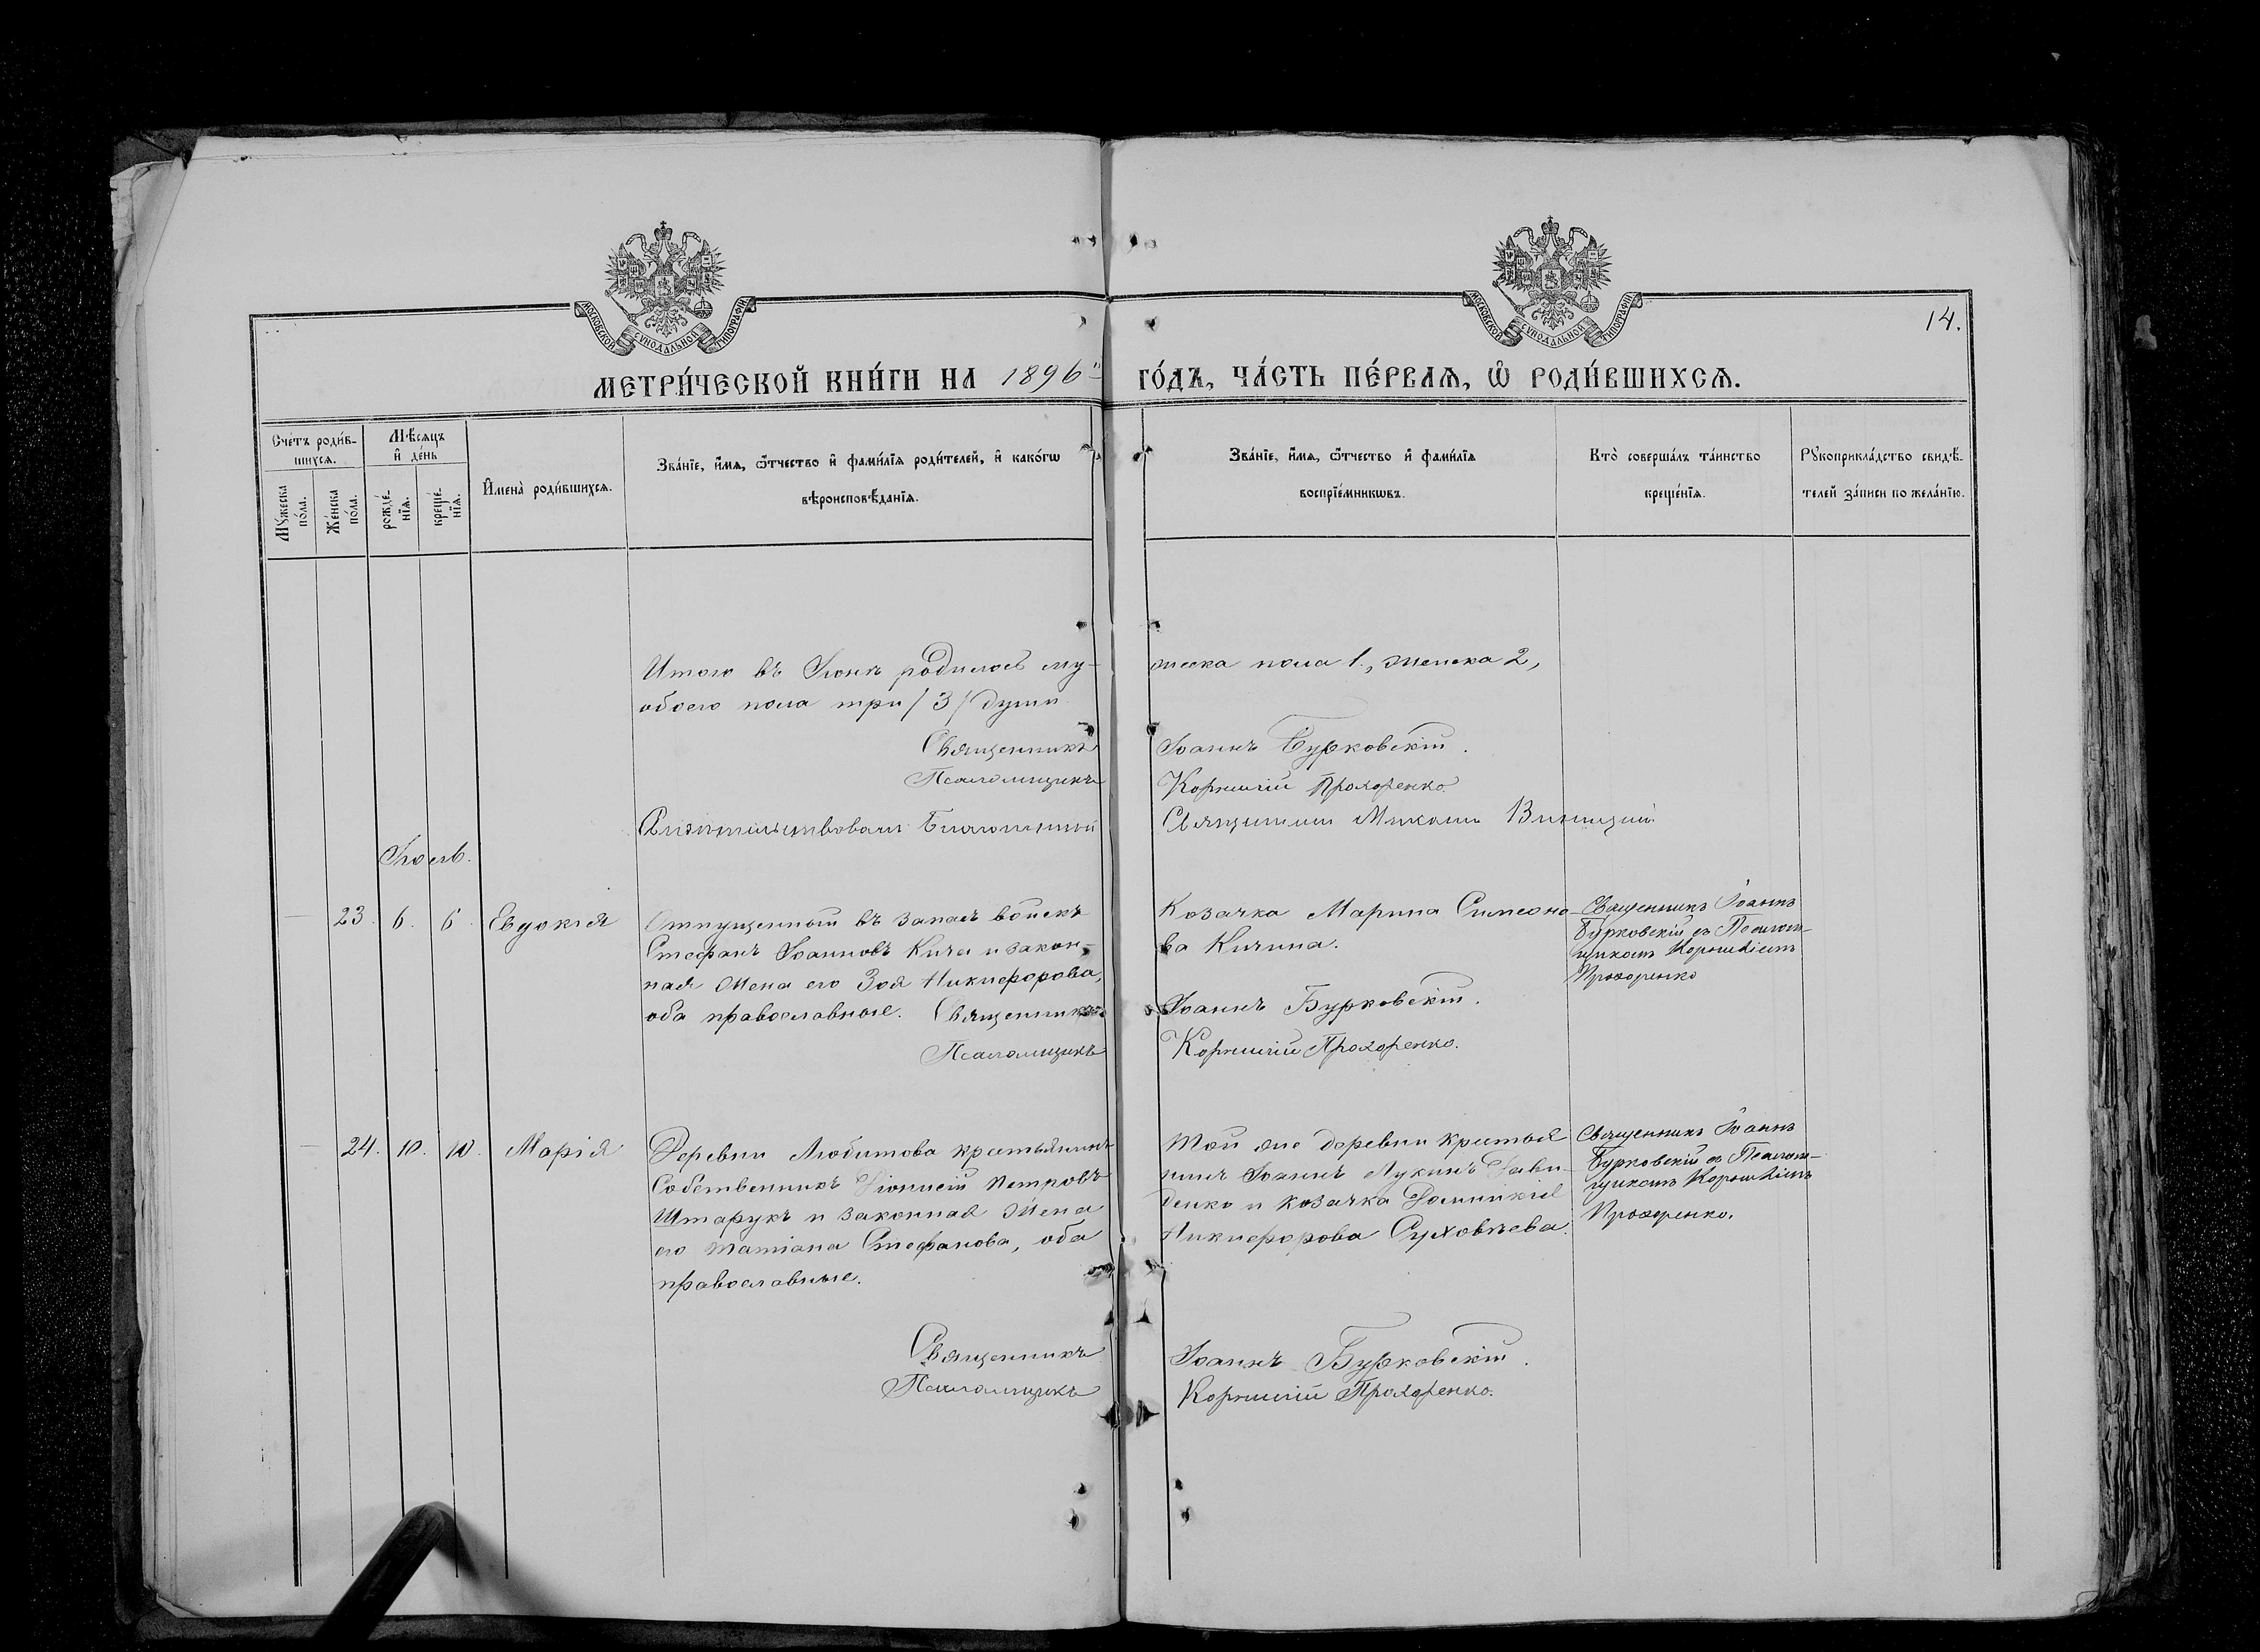 МОСКОВСКОЙ СѴНОДАЛЬНОЙ ТИПОГРАФІИ
МОСКОВСКОЙ СѴНОДАЛЬНОЙ ТИПОГРАФІИ
14.
МЕТРИ́ЧЕСКОЙ КНИ́ГИ НА 1896й ГО́ДЪ, ЧА́СТЬ ПЕ́РВАѦ, Ѡ҆ РОДИ́ВШИХСѦ.
Сче́тъ роди́в-
шихсѧ.
Мꙋ́жеска по́ла.
Же́нска по́ла.
Мѣ́сяцъ
и҆ де́нь
рожде́-
нїѧ.
креще́-
нїѧ.
И҆мена̀ роди́вшихсѧ.
Зва́нїе, и҆́мѧ, ѻ҆́тчество и҆ фами́лїѧ роди́телей, и҆ како́гѡ
вѣроисповѣ́данїѧ.
Зва́нїе, и҆́мѧ, ѻ҆́тчество и҆ фами́лїѧ
воспрїе́мникѡвъ.
Кто̀ соверша́лъ та́инство
креще́нїѧ.
Рꙋкоприкла́дство свидѣ́-
телей за́писи по жела́нїю.
Итого въ Іюнѣ родилось му-
жеска пола 1., женска 2,
обоего пола три /3/ души
Священникъ Іоаннъ Бурковскій.
Псаломщикъ Корнилій Прохоренко.
Священникъ
Іюль.
23. 6. 6. Евдокія
Отпущенный въ запасъ войскъ
Стефанъ Іоанновъ Кича и закон-
ная жена его Зоя Никифорова,
оба православные. Священникъ
Псаломщикъ
Козачка Марина Симеоно-
ва Кичина.
Іоаннъ Бурковскій.
Корнилій Прохоренко.
Священникъ Іоаннъ
Бурковскій съ Псалом-
щикомъ Корниліемъ
Прохоренко
24. 10. 10. Марія
Деревни Любитова крестьянинъ
Собственникъ Діонисій Петровъ
Штарукъ и законная жена
его Татіана Стефанова, оба
православные.
Священникъ
Псаломщикъ
Той же деревни крестья
нинъ Іоаннъ Лукинъ Дави-
денко и козачка Домникія
Никифорова Суховѣева.
Іоаннъ Бурковскій.
Корнилій Прохоренко.
Священникъ Іоаннъ
Бурковскій съ Псалом-
щикомъ Корниліемъ
Прохоренко.